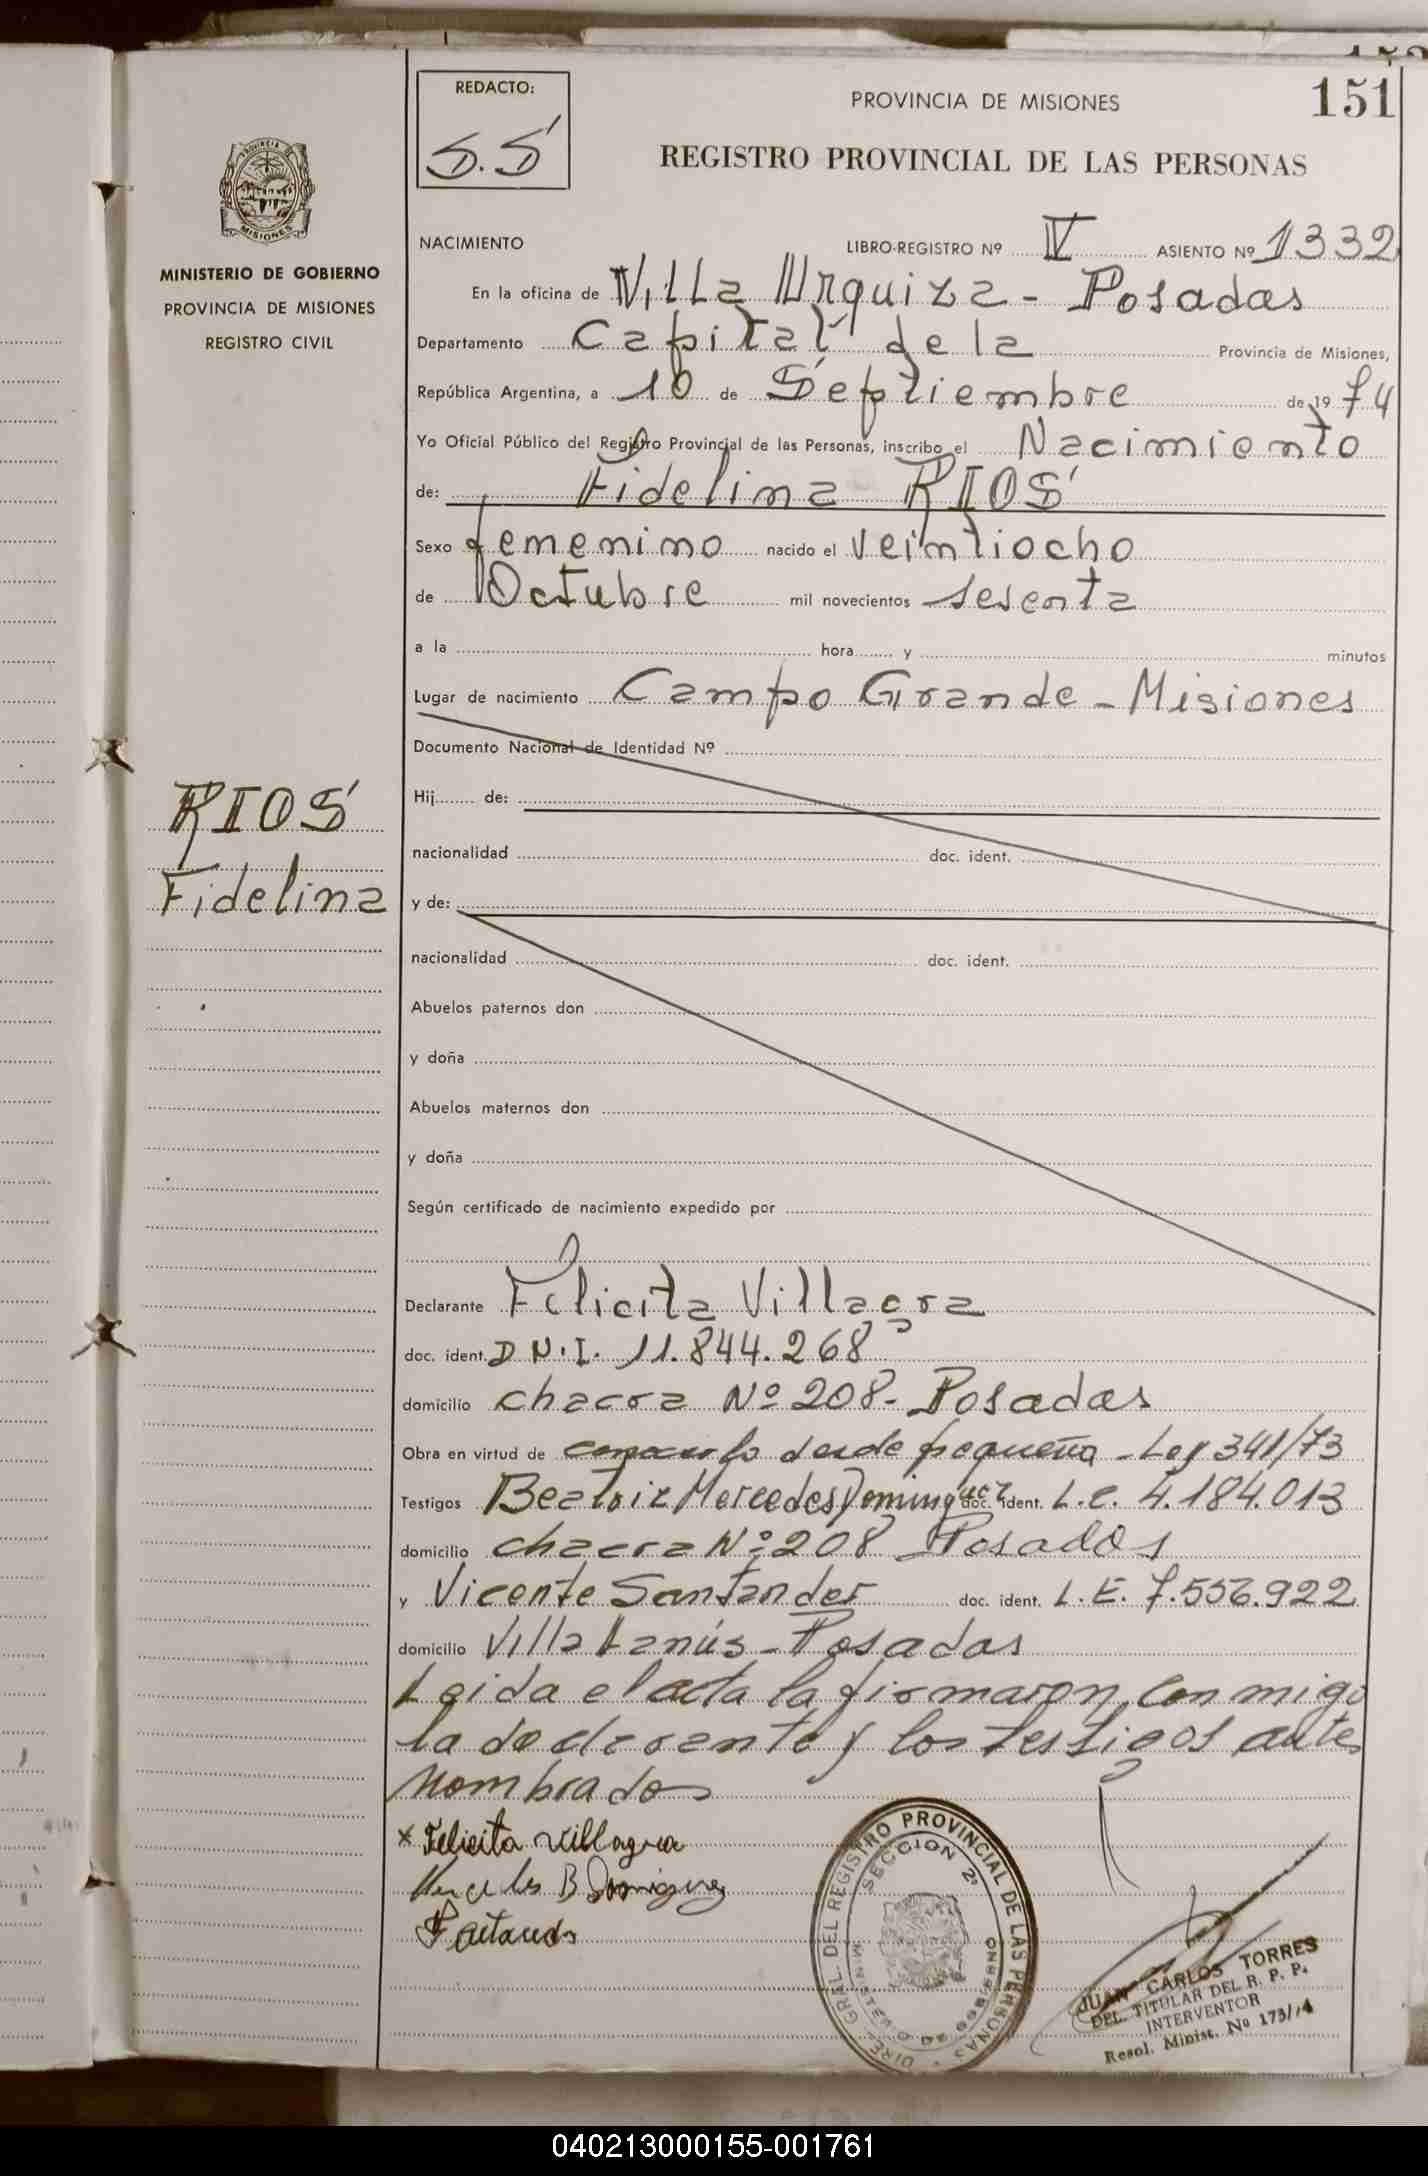 151
REDACTO:
S.S
PROVINCIA DE MISIONES
REGISTRO PROVINCIAL DE LAS PERSONAS
MISIONES
MINISTERIO DE GOBIERNO
PROVINCIA DE MISIONES
REGISTRO CIVIL
NACIMIENTO LIBRO-REGISTRO Nº IV ASIENTO Nº 1332
En la oficina de Villa Urquiza - Posadas
Departamento Capital de la Provincia de Misiones,
República Argentina, a 10 de Septiembre de 19 74
Yo Oficial Público del Registro Provincial de las Personas, inscribo el Nacimiento
de: Fidelina RIOS
Sexo femenino nacido el veintiocho
de Octubre mil novecientos sesenta
a la hora y minutos
Lugar de nacimiento Campo Grande - Misiones
Documento Nacional de Identidad Nº
Hij de:
nacionalidad doc. ident.
y de:
nacionalidad doc. ident.
Abuelos paternos don
y doña
Abuelos maternos don
y doña
Según certificado de nacimiento expedido por
RIOS
Fidelina
Declarante Felicita Villagra
doc. ident. D N.I. 11.844.268
domicilio chacra Nº 208 - Posadas
Obra en virtud de conocerla desde pequeña - Ley 341/73
Testigos Beatriz Mercedes Dominguez doc. ident. L.C. 4.184.013
domicilio chacra Nº 208 Posadas
y Vicente Santander doc. ident. L.E. 7.556.922
domicilio Villa Lanús - Posadas
Leida el acta la firmaron conmigo
la declarante y los testigos antes
nombrados
x Felicita Villagra
B Dominguez
DIRE. GRAL. DEL REGISTRO PROVINCIAL DE LAS PERSONAS
SECCION 2ª
MINISTERIO DE GOBIERNO
JUAN CARLOS TORRES
DEL. TITULAR DEL R. P. P.
INTERVENTOR
Resol. Minist. Nº 173/74
040213000155-001761